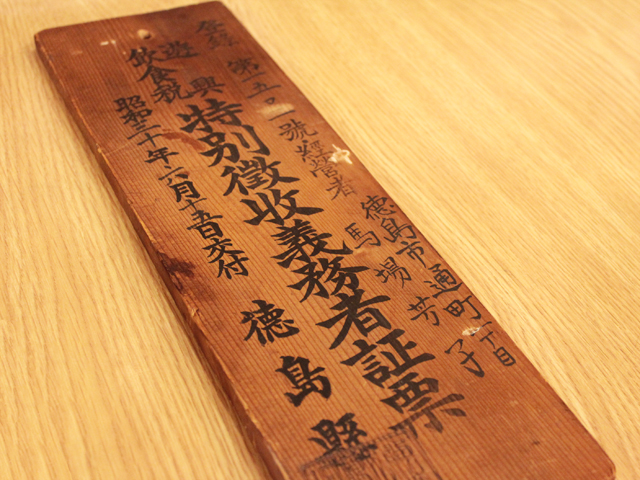 登録 第一五一號
經營者 徳島市通町一丁目
馬場芳子
遊興
飲食税
特別徴收義務者証票
昭和三十年六月十五日交付
徳島縣